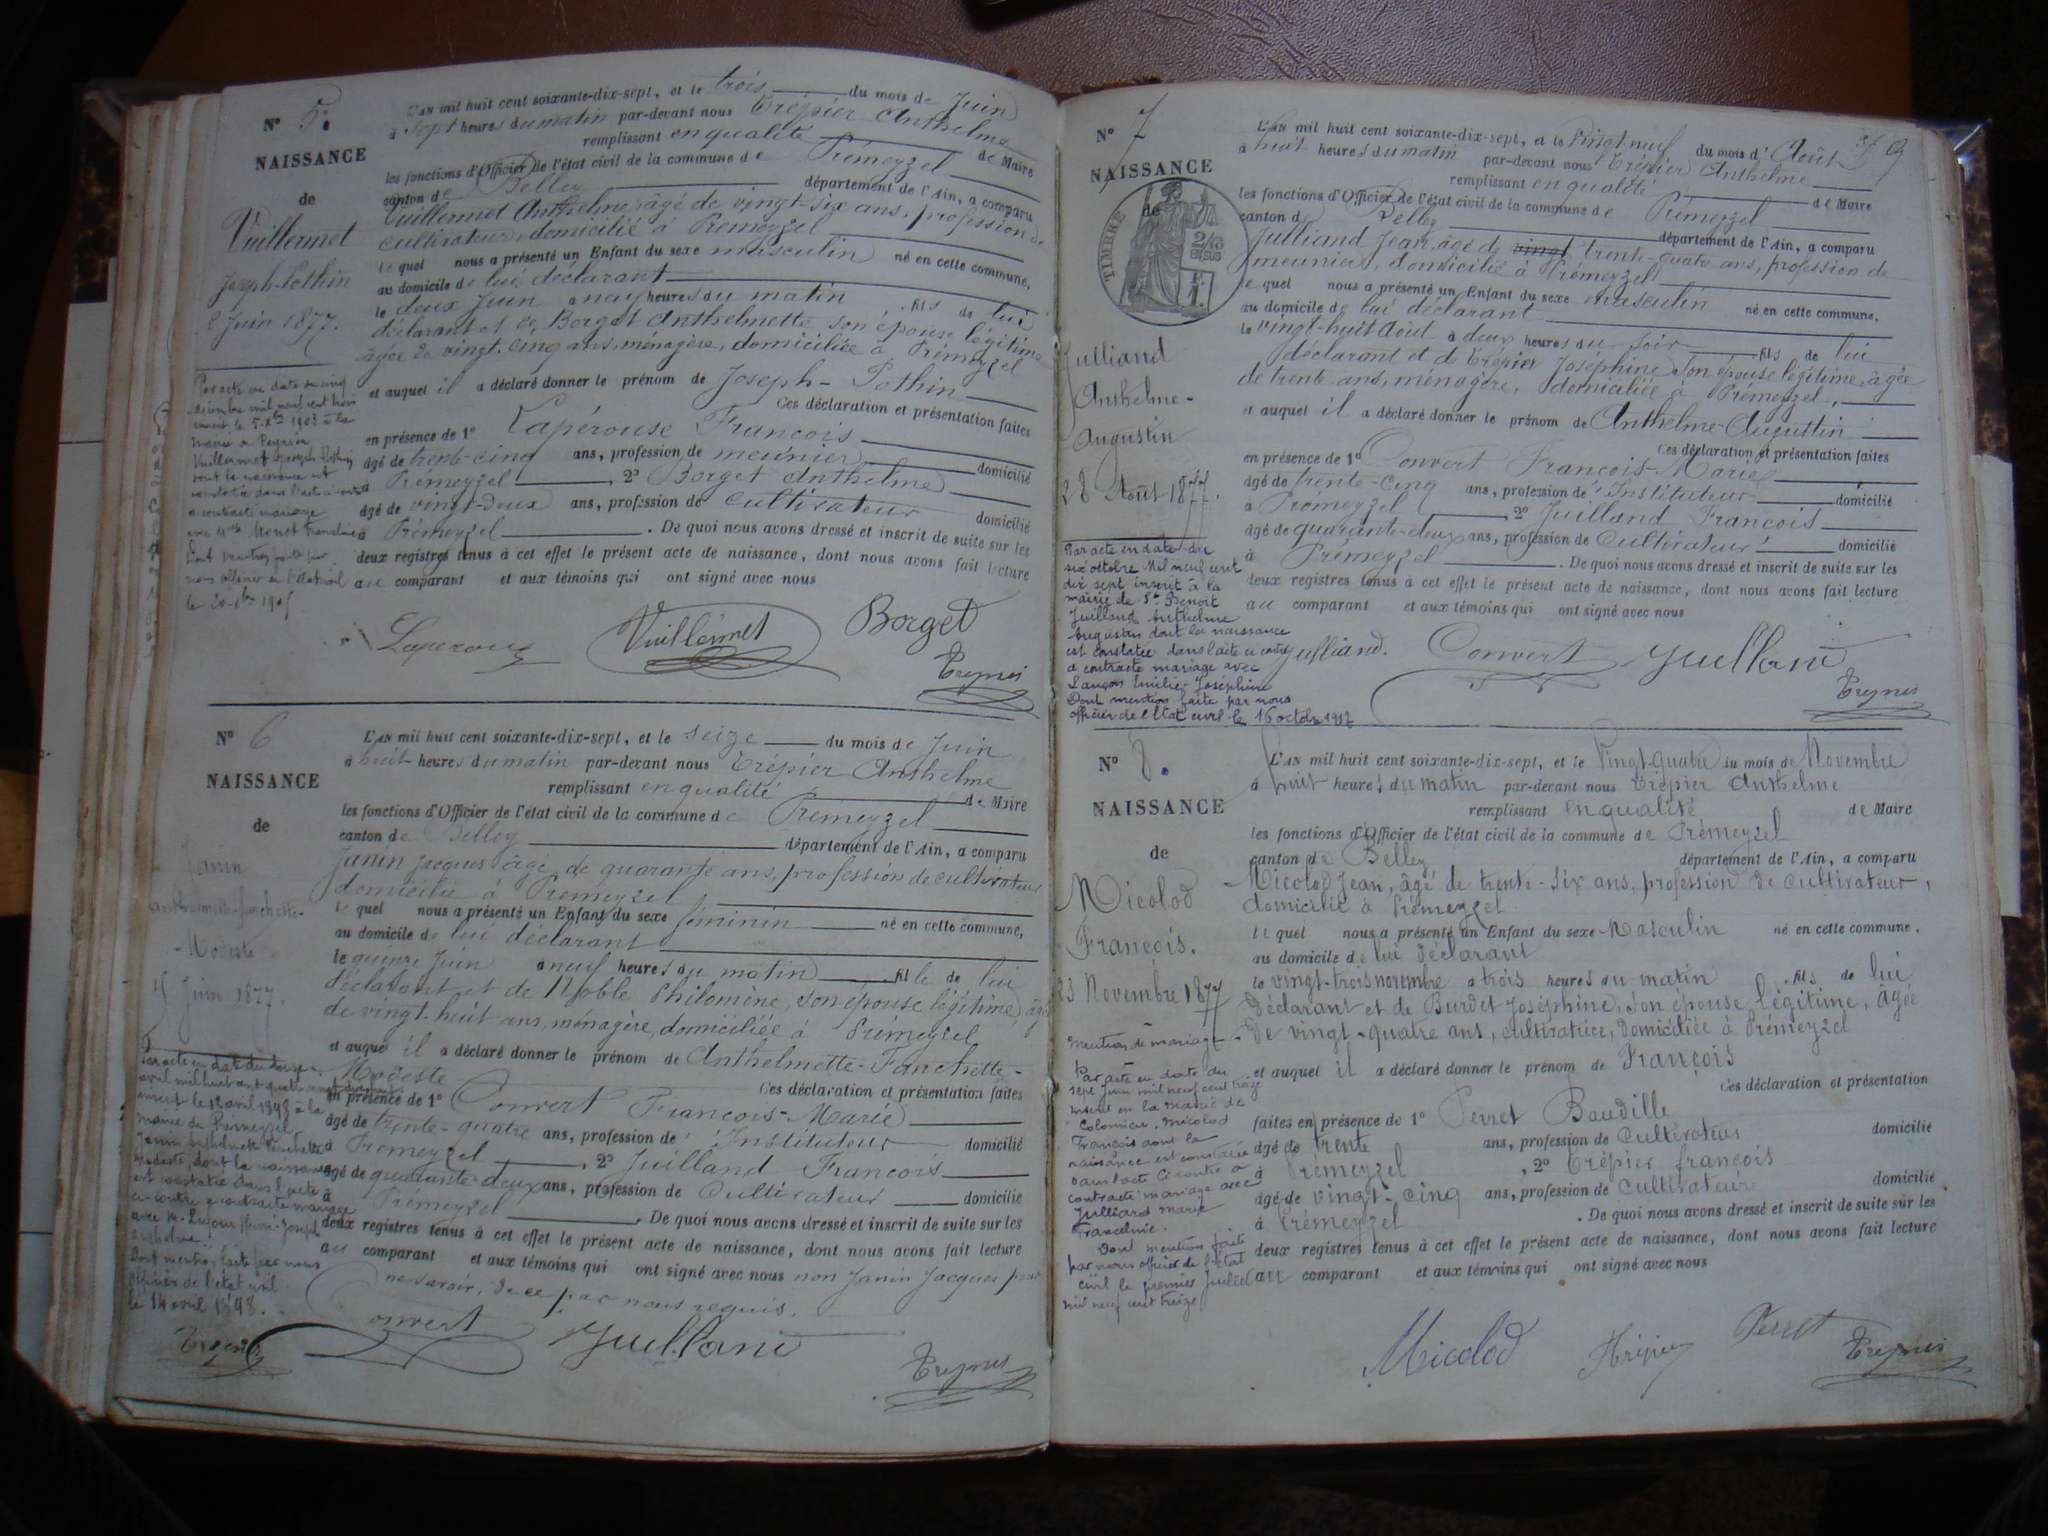 N° 5.
NAISSANCE
de
Vuillermet
Joseph-Pothin
2 Juin 1877.
L'AN mil huit cent soixante-dix-sept, et le trois du mois de Juin
à sept heures du matin par-devant nous Trépier Anthelme
remplissant en qualité de Maire
les fonctions d'Officier de l'état civil de la commune de Prémeyzel
canton de Belley département de l'Ain, a comparu
Vuillermet Anthelme, âgé de vingt-six ans, profession de
cultivateur, domicilié à Prémeyzel
lequel nous a présenté un Enfant du sexe masculin né en cette commune,
au domicile de lui déclarant
le deux Juin à neuf heures du matin fils de lui
déclarant et de Borget Anthelmette, son épouse légitime
âgée de vingt-cinq ans, ménagère, domiciliée à Prémeyzel
et auquel il a déclaré donner le prénom de Joseph-Pothin
Ces déclaration et présentation faites
en présence de 1° Lapérouse François
âgé de trente-cinq ans, profession de meunier domicilié
à Prémeyzel, 2° Borget Anthelme
âgé de vingt-deux ans, profession de cultivateur domicilié
à Prémeyzel. De quoi nous avons dressé et inscrit de suite sur les
deux registres tenus à cet effet le présent acte de naissance, dont nous avons fait lecture
au comparant et aux témoins qui ont signé avec nous
Par acte en date du cinq
décembre mil neuf cent trois
inscrit le 5 Xbre 1903 à la
mairie de Peyrieu
Vuillermet Joseph Pothin
dont la naissance est
constatée dans l'acte ci-contre
a contracté mariage
avec Monet
Dont mention faite par
nous officier de l'état civil
Laperouse Vuillermet Borget
Trépier
N° 6
NAISSANCE
de
Janin
Anthelmette-Fanchette-
Modeste
15 Juin 1877.
L'AN mil huit cent soixante-dix-sept, et le seize du mois de Juin
à huit heures du matin par-devant nous Trépier Anthelme
remplissant en qualité de Maire
les fonctions d'Officier de l'état civil de la commune de Prémeyzel
canton de Belley département de l'Ain, a comparu
Janin Jacques, âgé de quarante ans, profession de cultivateur
domicilié à Prémeyzel
lequel nous a présenté un Enfant du sexe féminin né en cette commune,
au domicile de lui déclarant
le quinze Juin à neuf heures du matin fille de lui
déclarant et de Noble Philomène, son épouse légitime, âgée
de vingt-huit ans, ménagère, domiciliée à Prémeyzel
et auquel il a déclaré donner le prénom de Anthelmette-Fanchette-
Modeste Ces déclaration et présentation faites
en présence de 1° Convert François-Marie
âgé de trente-quatre ans, profession d'Instituteur domicilié
à Prémeyzel, 2° Juilland François
âgé de quarante-deux ans, profession de Cultivateur domicilié
à Prémeyzel. De quoi nous avons dressé et inscrit de suite sur les
deux registres tenus à cet effet le présent acte de naissance, dont nous avons fait lecture
au comparant et aux témoins qui ont signé avec nous non Janin Jacques pour
ne savoir, de ce par nous requis.
Par acte en date du douze
avril mil huit cent quatre vingt dix huit
inscrit le 12 avril 1898 à la
mairie de Prémeyzel
Janin Anthelmette Fanchette
Modeste, dont la naissance
est constatée dans l'acte
ci-contre a contracté mariage
avec Joseph
Anthelme
Dont mention faite par nous
officier de l'état civil
le 14 avril 1898.
Convert Juilland Trépier
N° 7
NAISSANCE
de
TIMBRE
Julliand
Anthelme-
Augustin
28 Août 1877.
L'AN mil huit cent soixante-dix-sept, et le Vingt-neuf du mois d'Août
à huit heures du matin par-devant nous Trépier Anthelme
remplissant en qualité de Maire
les fonctions d'Officier de l'état civil de la commune de Prémeyzel
canton de Belley département de l'Ain, a comparu
Julliand Jean, âgé de vingt trente-quatre ans, profession de
meunier, domicilié à Prémeyzel
lequel nous a présenté un Enfant du sexe masculin né en cette commune,
au domicile de lui déclarant
le vingt-huit Août à deux heures du soir fils de lui
déclarant et de Trépier Joséphine, son épouse légitime, âgée
de trente ans, ménagère, domiciliée à Prémeyzel,
et auquel il a déclaré donner le prénom de Anthelme-Augustin
Ces déclaration et présentation faites
en présence de 1° Convert François-Marie
âgé de trente-cinq ans, profession d'Instituteur domicilié
à Prémeyzel, 2° Juilland François
âgé de quarante-deux ans, profession de Cultivateur domicilié
à Prémeyzel. De quoi nous avons dressé et inscrit de suite sur les
deux registres tenus à cet effet le présent acte de naissance, dont nous avons fait lecture
au comparant et aux témoins qui ont signé avec nous
Par acte en date du
six octobre Mil neuf cent
dix sept inscrit à la
mairie de St Benoit
Juilland Anthelme
Augustin dont la naissance
est constatée dans l'acte ci contre
a contracté mariage avec
Lançon Emilie-Joséphine
Dont mention faite par nous
officier de l'Etat civil le 16 octobre 1917
Julliand. Convert Juilland
Trépier
N° 8.
NAISSANCE
de
Micolod
François.
23 Novembre 1877
L'AN mil huit cent soixante-dix-sept, et le Vingt-quatre du mois de Novembre
à huit heures du matin par-devant nous Trépier Anthelme
remplissant en qualité de Maire
les fonctions d'Officier de l'état civil de la commune de Prémeyzel
canton de Belley département de l'Ain, a comparu
Micolod Jean, âgé de trente-six ans, profession de cultivateur,
domicilié à Prémeyzel.
lequel nous a présenté un Enfant du sexe Masculin né en cette commune.
au domicile de lui déclarant
le vingt-trois novembre à trois heures du matin fils de lui
déclarant et de Burdet Joséphine, son épouse légitime, âgée
de vingt-quatre ans, cultivatrice, domiciliée à Prémeyzel
et auquel il a déclaré donner le prénom de François
Ces déclaration et présentation
faites en présence de 1° Perret Baudille
âgé de trente ans, profession de cultivateur domicilié
à Prémeyzel, 2° Trépier françois
âgé de vingt-cinq ans, profession de cultivateur domicilié
à Prémeyzel. De quoi nous avons dressé et inscrit de suite sur les
deux registres tenus à cet effet le présent acte de naissance, dont nous avons fait lecture
au comparant et aux témoins qui ont signé avec nous
Mention de mariage
Par acte en date du
sept Juin mil neuf cent treize
inscrit en la mairie de
Colomieu, Micolod
François dont la
naissance est constatée
dans l'acte ci contre a
contracté mariage avec
Julliard Marie
Francine.
Dont mention faite
par nous officier de l'état
civil le premier Juillet
mil neuf cent treize
Micolod Trépier Perret Trépier